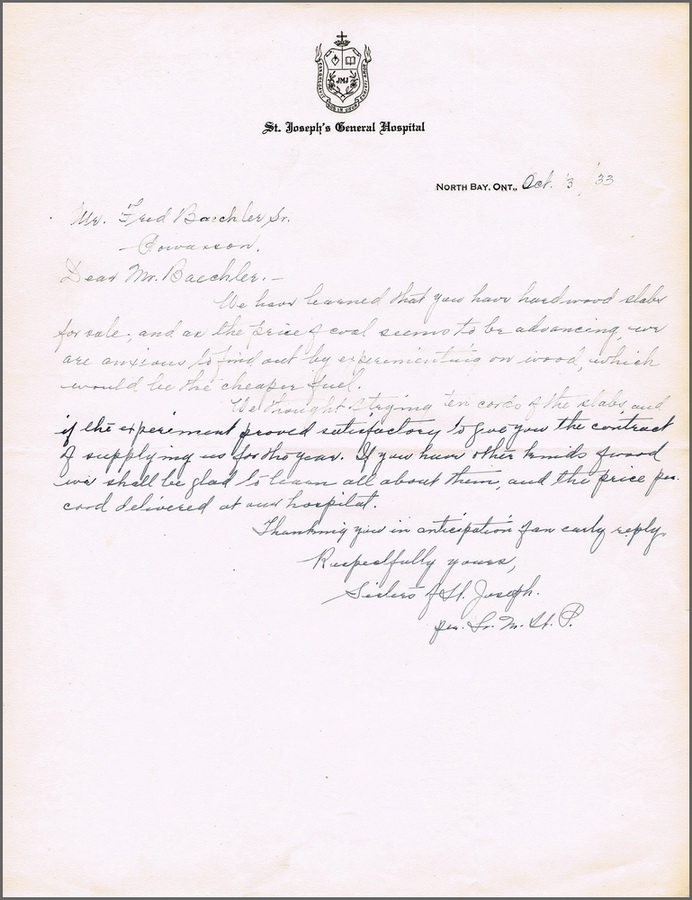 JMJ
St. Joseph's General Hospital
NORTH BAY, ONT., Oct. 3 '33
Mr. Fred Baechler, Sr.
Powasson.
Dear Mr. Baechler.—
We have learned that you have hardwood slabs
for sale, and as the price of coal seems to be advancing, we
are anxious to find out by experimenting on wood, which
would be the cheaper fuel.
We thought of trying ten cords of the slabs, and
if the experiment proved satisfactory to give you the contract
of supplying us for the year. If you have other kinds of wood
we shall be glad to learn all about them, and the price per
cord delivered at our hospital.
Thanking you in anticipation of an early reply.
Respectfully yours,
Sisters of St. Joseph.
per. Sr. M. St. P.